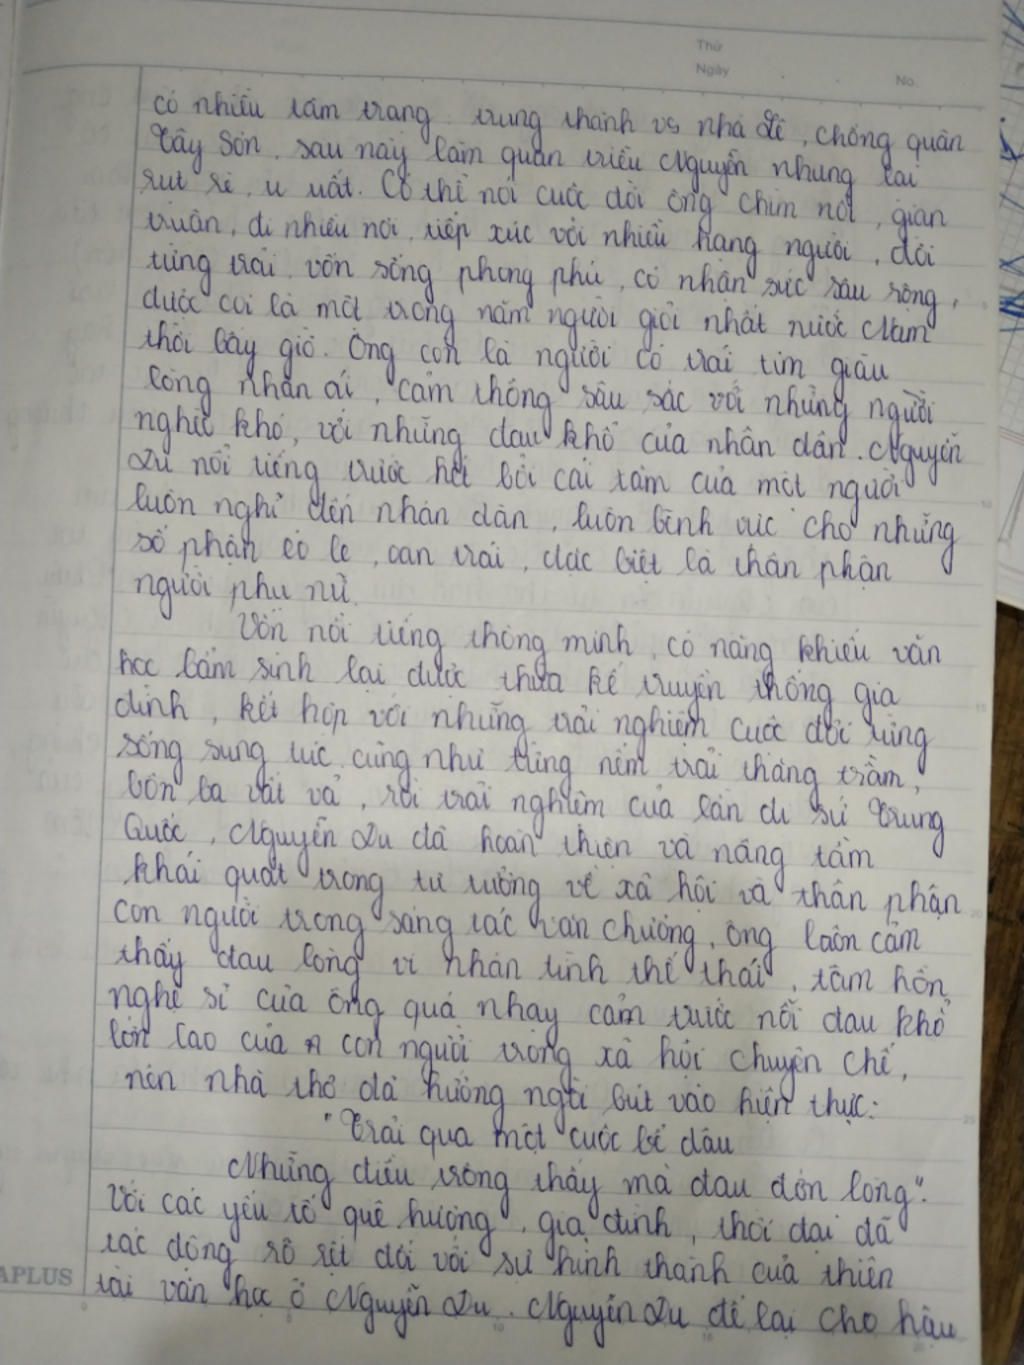 Thứ
Ngày
No.
có nhiều tâm trạng. trung thành vs nhà Lê, chống quân
Tây Sơn, sau này làm quan triều Nguyễn nhưng lại
rụt rè, u uất. Có thể nói cuộc đời ông chìm nổi, gian
truân, đi nhiều nơi, tiếp xúc với nhiều hạng người, đời
từng trải, vốn sống phong phú, có nhận sức sâu rộng,
được coi là một trong năm người giỏi nhất nước Nam
thời bấy giờ. Ông còn là người có trái tim giàu
lòng nhân ái, cảm thông sâu sắc với những người
nghèo khó, với những đau khổ của nhân dân. Nguyễn
Du nổi tiếng trước hết bởi cái tâm của một người
luôn nghĩ đến nhân dân, luôn bênh vực cho những
số phận éo le, oan trái, đặc biệt là thân phận
người phụ nữ.
Vốn nổi tiếng thông minh, có năng khiếu văn
học bẩm sinh lại được thừa kế truyền thống gia
đình, kết hợp với những trải nghiệm cuộc đời từng
sống sung túc cũng như từng nếm trải thăng trầm,
bôn ba vất vả, rồi trải nghiệm của lần đi sứ Trung
Quốc, Nguyễn Du đã hoàn thiện và nâng tầm
khái quát trong tư tưởng về xã hội và thân phận
con người trong sáng tác văn chương, ông luôn cảm
thấy đau lòng vì nhân tình thế thái, tâm hồn
nghệ sĩ của ông quá nhạy cảm trước nỗi đau khổ
lớn lao của con người trong xã hội chuyên chế,
nên nhà thơ đã hướng ngòi bút vào hiện thực:
"Trải qua một cuộc bể dâu
Những điều trông thấy mà đau đớn lòng".
Với các yếu tố quê hương, gia đình, thời đại đã
tác động rõ rệt đối với sự hình thành của thiên
tài văn học ở Nguyễn Du. Nguyễn Du để lại cho hậu
APLUS